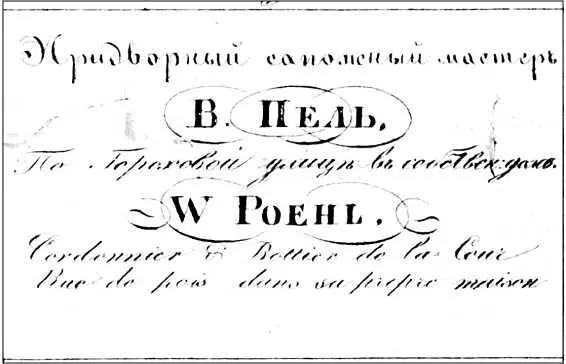 Придворный сапожный мастеръ
В. ПЕЛЬ,
По Гороховой улицѣ въ собствен. домѣ.
W POEHL.
Cordonnier & Bottier de la Cour
Rue de pois dans sa propre maison